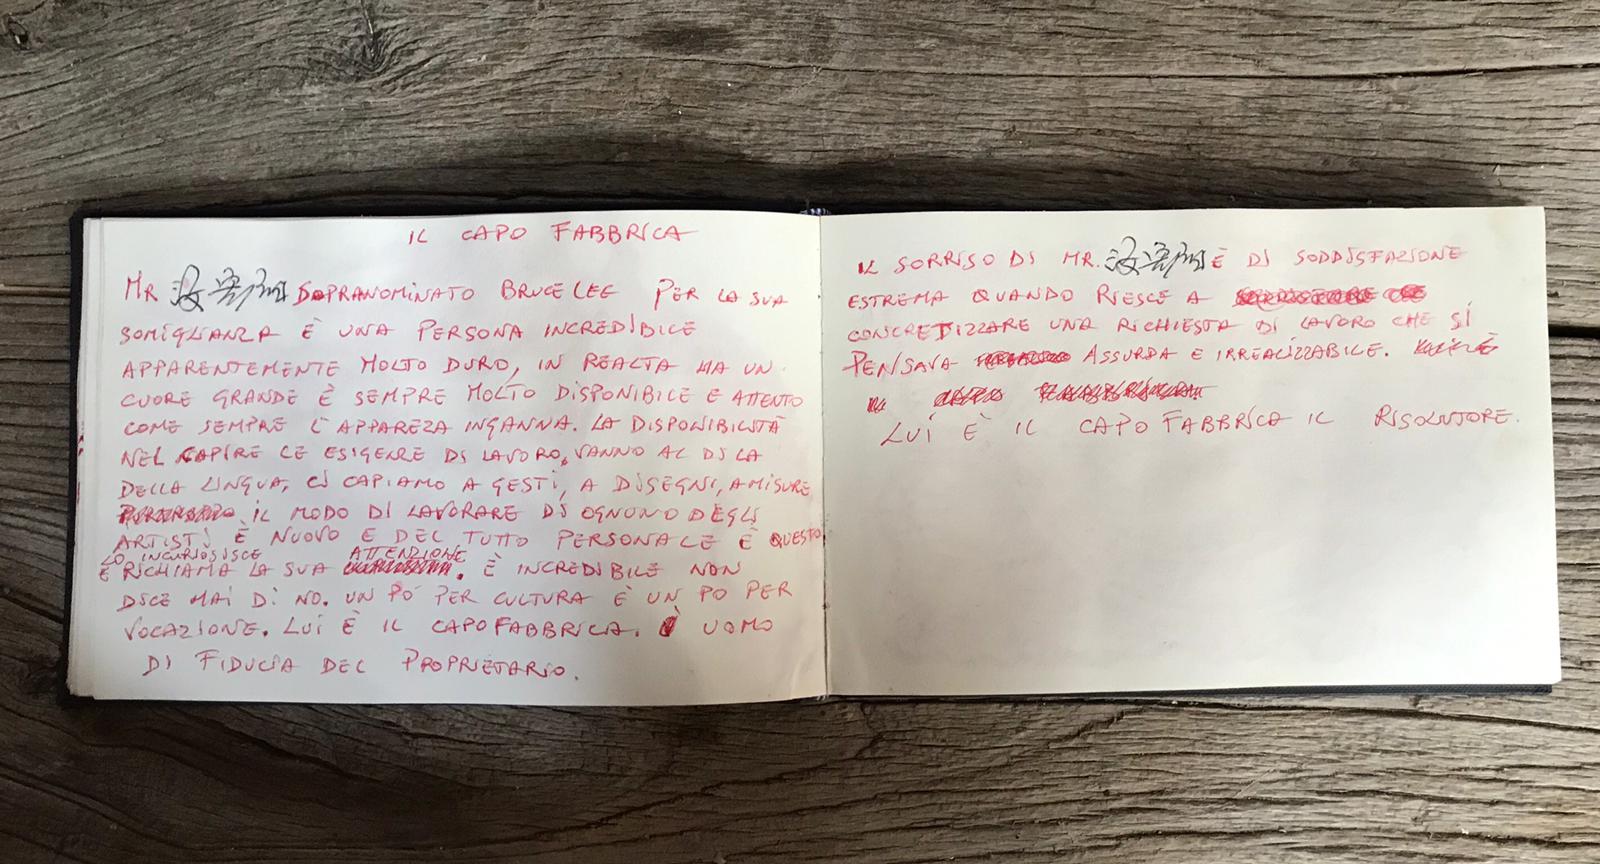 IL CAPO FABBRICA
MR SOPRANOMINATO BRUCE LEE PER LA SUA
SOMIGLIANZA È UNA PERSONA INCREDIBILE
APPARENTEMENTE MOLTO DURO, IN REALTA HA UN
CUORE GRANDE È SEMPRE MOLTO DISPONIBILE E ATTENTO
COME SEMPRE L'APPAREZA INGANNA. LA DISPONIBILITÀ
NEL CAPIRE LE ESIGENZE DI LAVORO, VANNO AL DI LA
DELLA LINGUA, CI CAPIAMO A GESTI, A DISEGNI, A MISURE
IL MODO DI LAVORARE DI OGNUNO DEGLI
ARTISTI È NUOVO E DEL TUTTO PERSONALE È QUESTO
LO INCURIOSISCE ATTENZIONE
E RICHIAMA LA SUA . È INCREDIBILE NON
DICE MAI DI NO. UN PO' PER CULTURA E UN PO PER
VOCAZIONE. LUI È IL CAPO FABBRICA. UOMO
DI FIDUCIA DEL PROPRIETARIO.
IL SORRISO DI MR. È DI SODDISFAZIONE
ESTREMA QUANDO RIESCE A
CONCRETIZZARE UNA RICHIESTA DI LAVORO CHE SI
PENSAVA ASSURDA E IRREALIZZABILE.
LUI È IL CAPO FABBRICA IL RISOLUTORE.